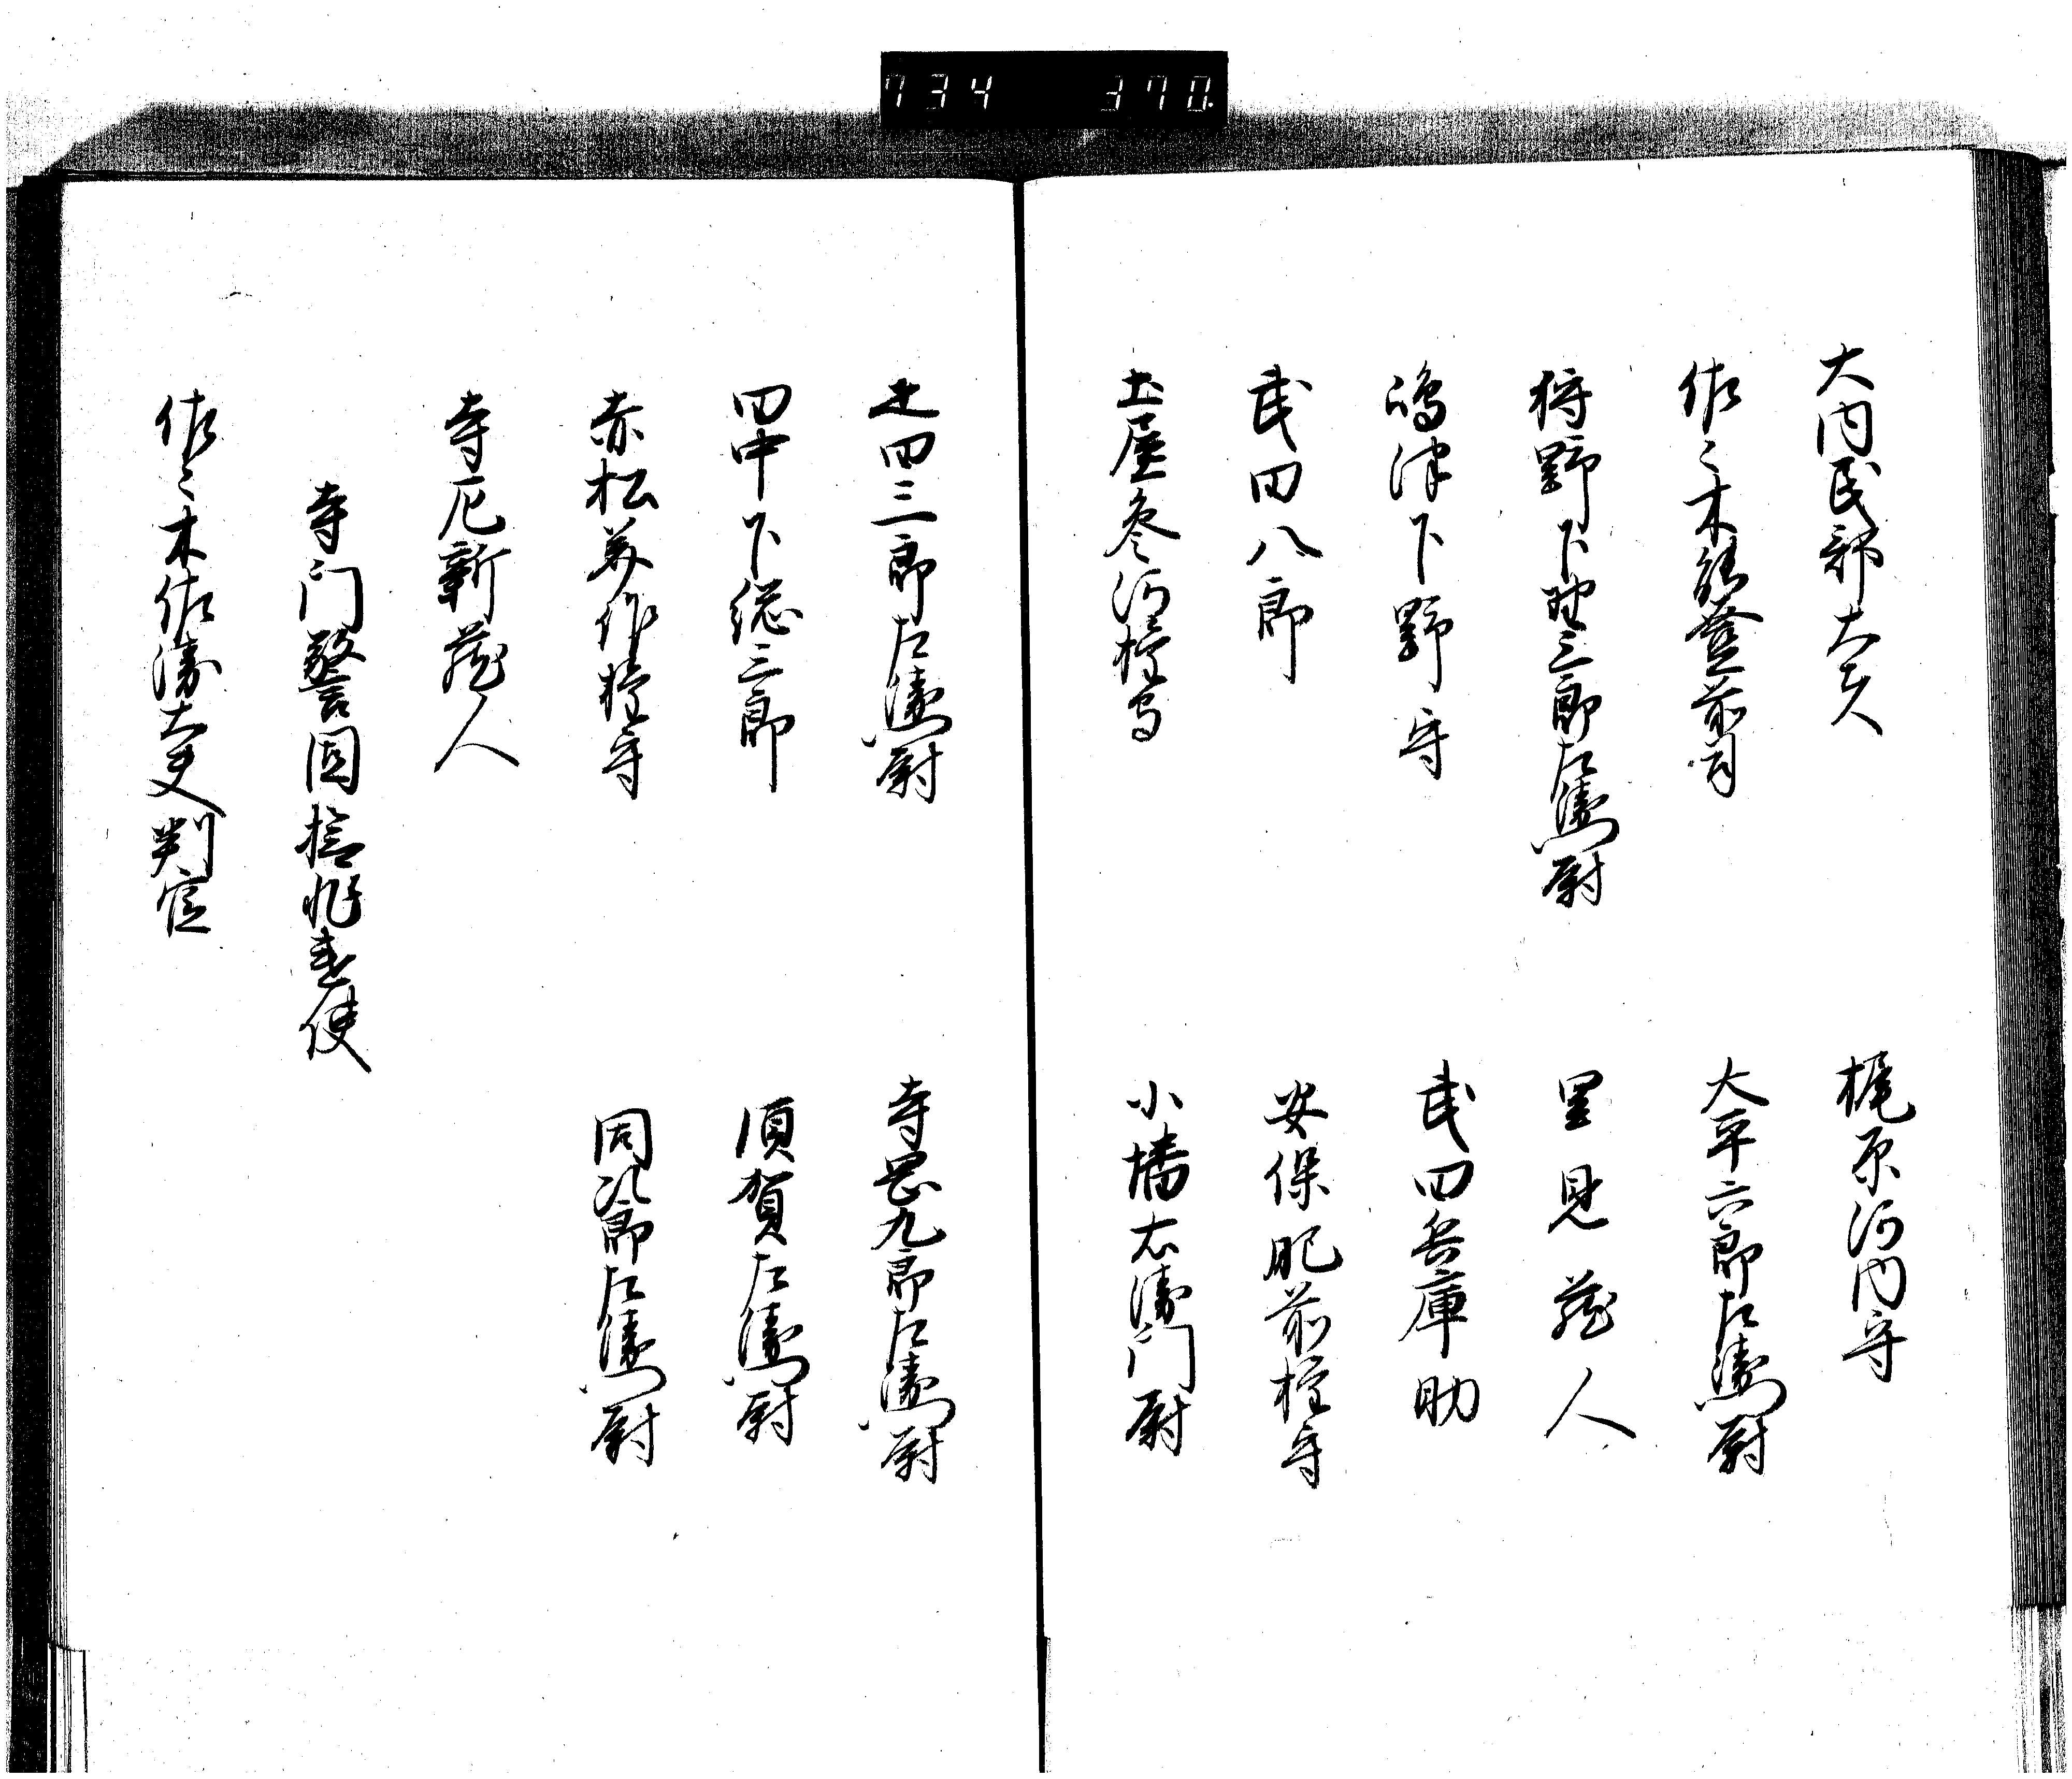 734 370
大内民部大夫
梶原河内守
佐々木能登前司
大平六郎左衛門尉
狩野下野三郎左衛門尉
里見蔵人
嶋津下野守
武田兵庫助
武田八郎
安保肥前権守
土屋参河権守
小幡右衛門尉
疋田三郎左衛門尉
寺岡九郎左衛門尉
田中下総三郎
須賀左衛門尉
赤松美作権守
同次郎左衛門尉
寺尼新蔵人
寺門警固検非違使
佐々木佐渡大夫判官